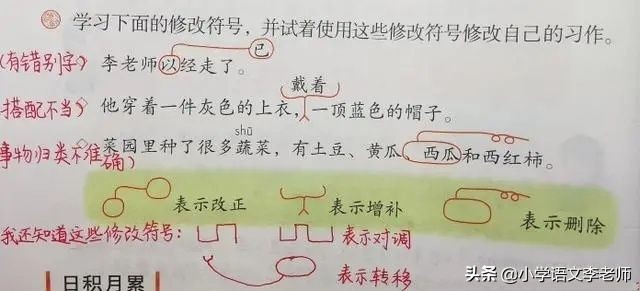 学习下面的修改符号，并试着使用这些修改符号修改自己的习作。
已
(有错别字) 李老师以经走了。
戴着
搭配不当) 他穿着一件灰色的上衣，一顶蓝色的帽子。
shū
事物归类不准确) 菜园里种了很多蔬菜，有土豆、黄瓜、西瓜和西红柿。
表示改正 表示增补 表示删除
我还知道这些修改符号： 表示对调
表示转移
日积月累
头条 @小学语文李老师